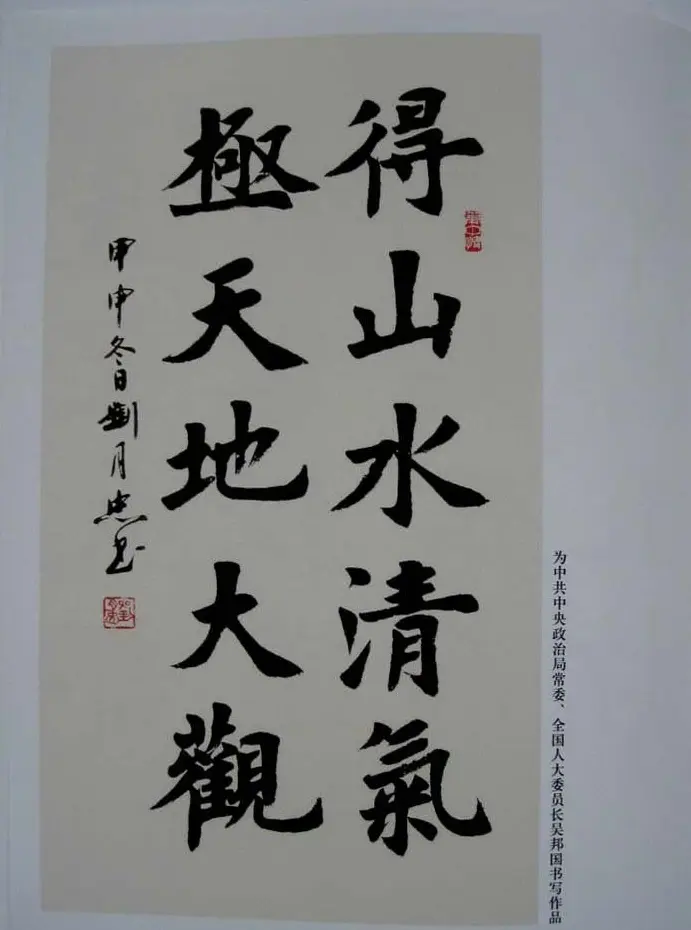 得山水清氣
極天地大觀
甲申冬日劉月忠书
为中共中央政治局常委、全国人大委员长吴邦国书写作品